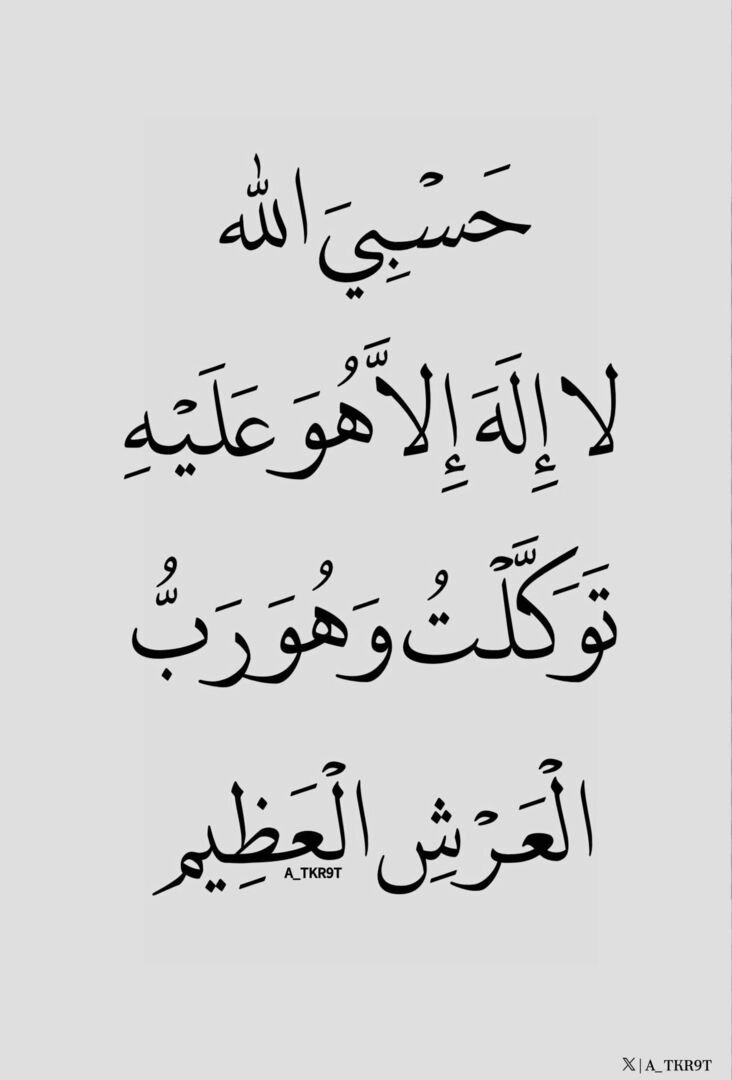 حَسْبِيَ الله
لا إِلَهَ إِلاَّ هُوَ عَلَيْهِ
تَوَكَّلْتُ وَهُوَ رَبُّ
الْعَرْشِ الْعَظِيم
A_TKR9T
𝕏 | A_TKR9T